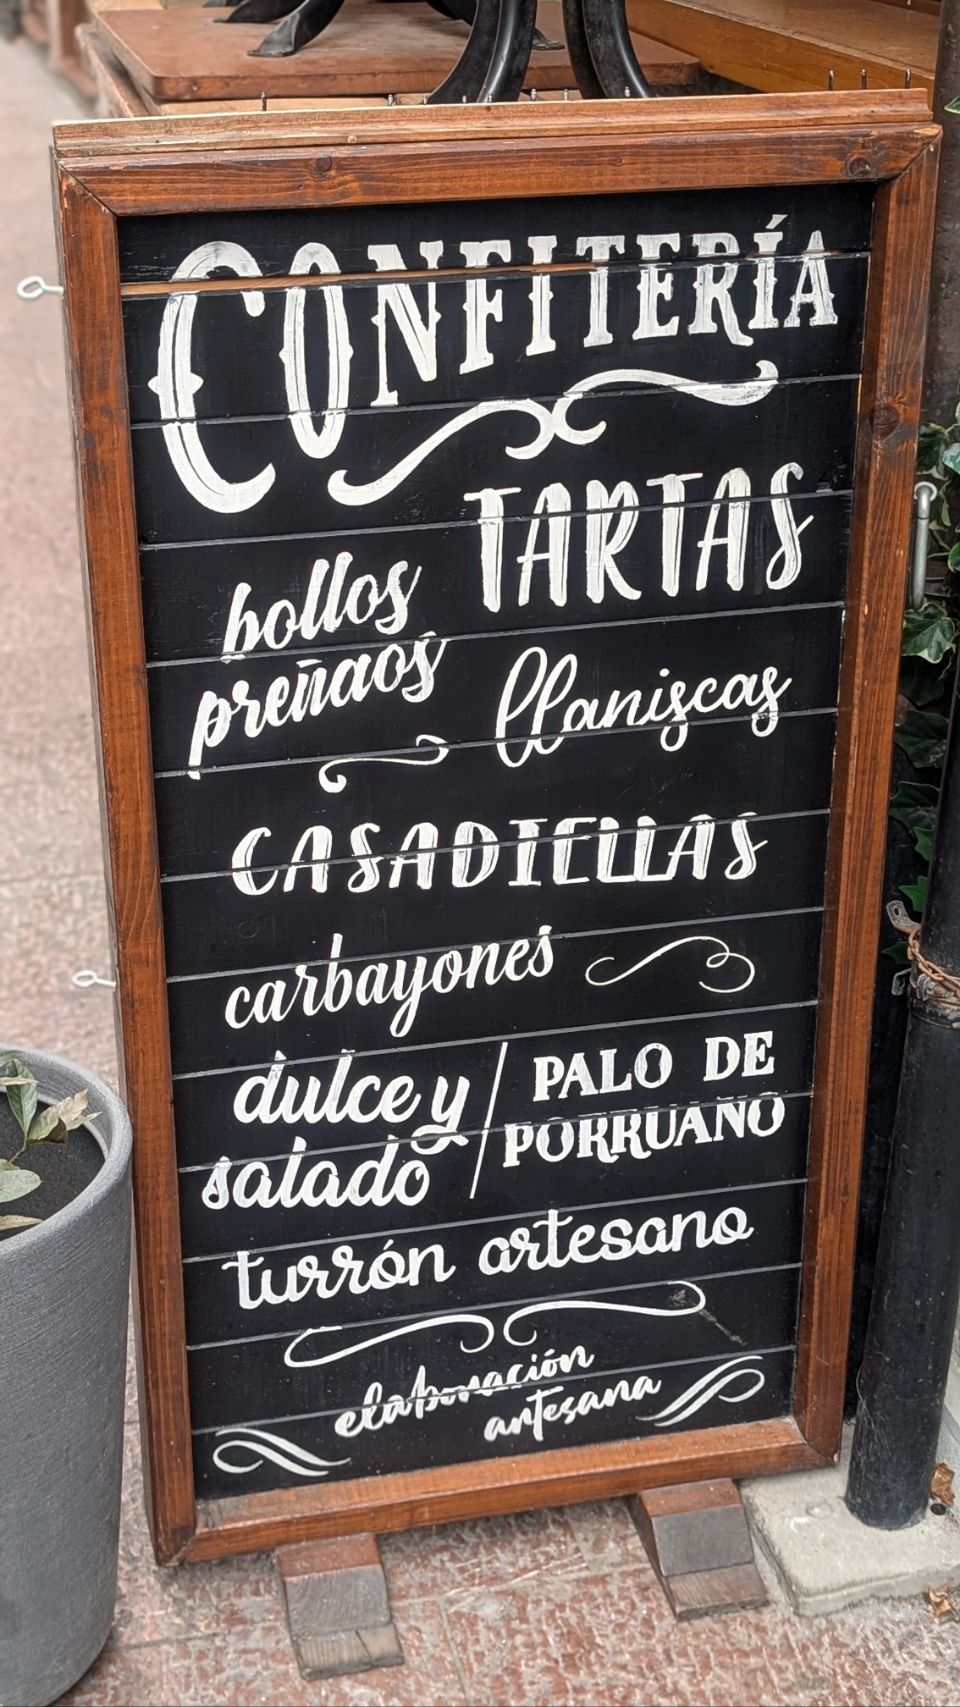 CONFITERÍA
TARTAS
bollos
preñaos
llaniscas
CASADIELLAS
carbayones
dulce y
salado
PALO DE
PORRUANO
turrón artesano
elaboración
artesana